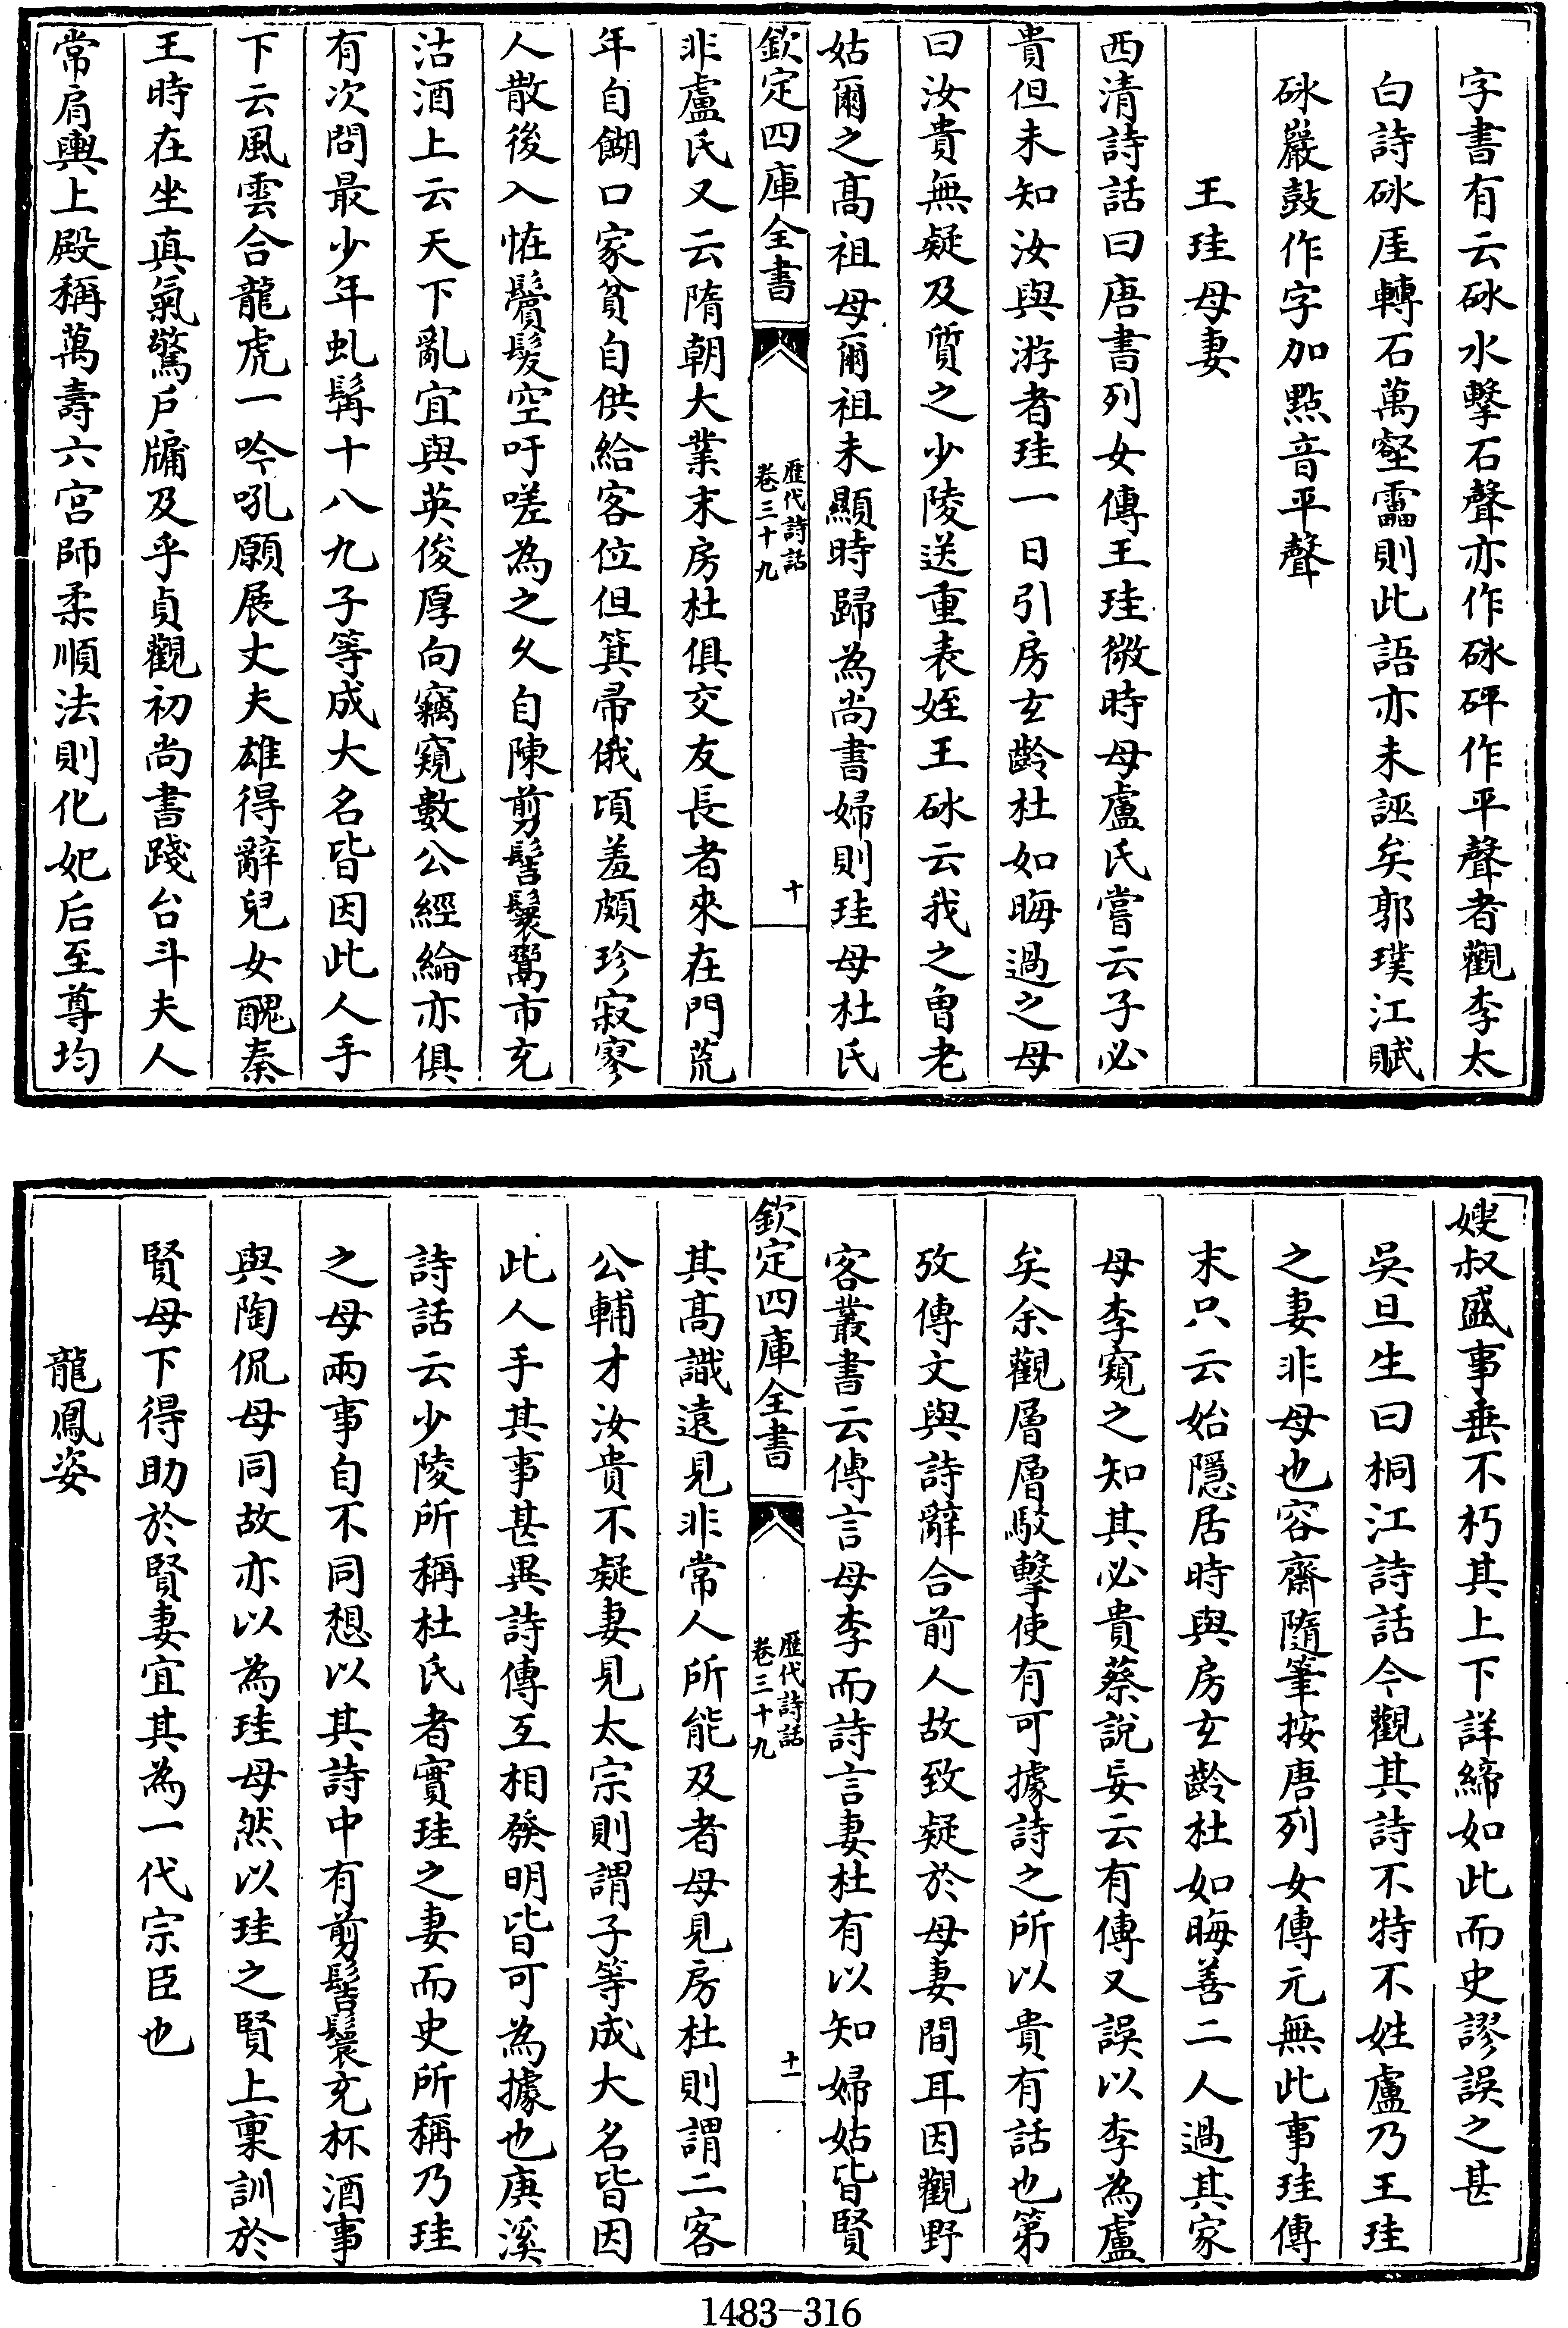 字書有云砅水擊石聲亦作砅砰作平聲者觀李太
白詩砅厓轉石萬壑靁則此語亦未誣矣郭璞江賦
砅巖鼓作字加點音平聲
王珪母妻
西清詩話曰唐書列女傳王珪微時母盧氏嘗云子必
貴但未知汝與游者珪一日引房玄齡杜如晦過之母
曰汝貴無疑及質之少陵送重表姪王砅云我之曾老
姑爾之髙祖母爾祖未顯時歸為尚書婦則珪母杜氏
欽定四庫全書
歷代詩話
卷三十九
十
非盧氏又云隋朝大業末房杜俱交友長者來在門荒
年自餬口家貧自供給客位但箕帚俄頃羞頗珍寂寥
人散後入怪鬢髮空吁嗟為之久自陳剪髻鬟鬻市充
沽酒上云天下亂宜與英俊厚向竊窺數公經綸亦俱
有次問最少年虬髯十八九子等成大名皆因此人手
下云風雲合龍虎一吟吼願展丈夫雄得辭兒女醜秦
王時在坐真氣驚戶牖及乎貞觀初尚書踐台斗夫人
常肩輿上殿稱萬壽六宫師柔順法則化妃后至尊均
嫂叔盛事垂不朽其上下詳締如此而史謬誤之甚
吳旦生曰桐江詩話今觀其詩不特不姓盧乃王珪
之妻非母也容齋隨筆按唐列女傳元無此事珪傳
末只云始隱居時與房玄齡杜如晦善二人過其家
母李窺之知其必貴蔡說妄云有傳又誤以李為盧
矣余觀層層駮擊使有可據詩之所以貴有話也第
攷傳文與詩辭合前人故致疑於母妻間耳因觀野
客叢書云傳言母李而詩言妻杜有以知婦姑皆賢
欽定四庫全書
歷代詩話
卷三十九
十一
其髙識遠見非常人所能及者母見房杜則謂二客
公輔才汝貴不疑妻見太宗則謂子等成大名皆因
此人手其事甚異詩傳互相發明皆可為據也庚溪
詩話云少陵所稱杜氏者實珪之妻而史所稱乃珪
之母兩事自不同想以其詩中有剪髻鬟充杯酒事
與陶侃母同故亦以為珪母然以珪之賢上稟訓於
賢母下得助於賢妻宜其為一代宗臣也
龍鳳姿
1483-316